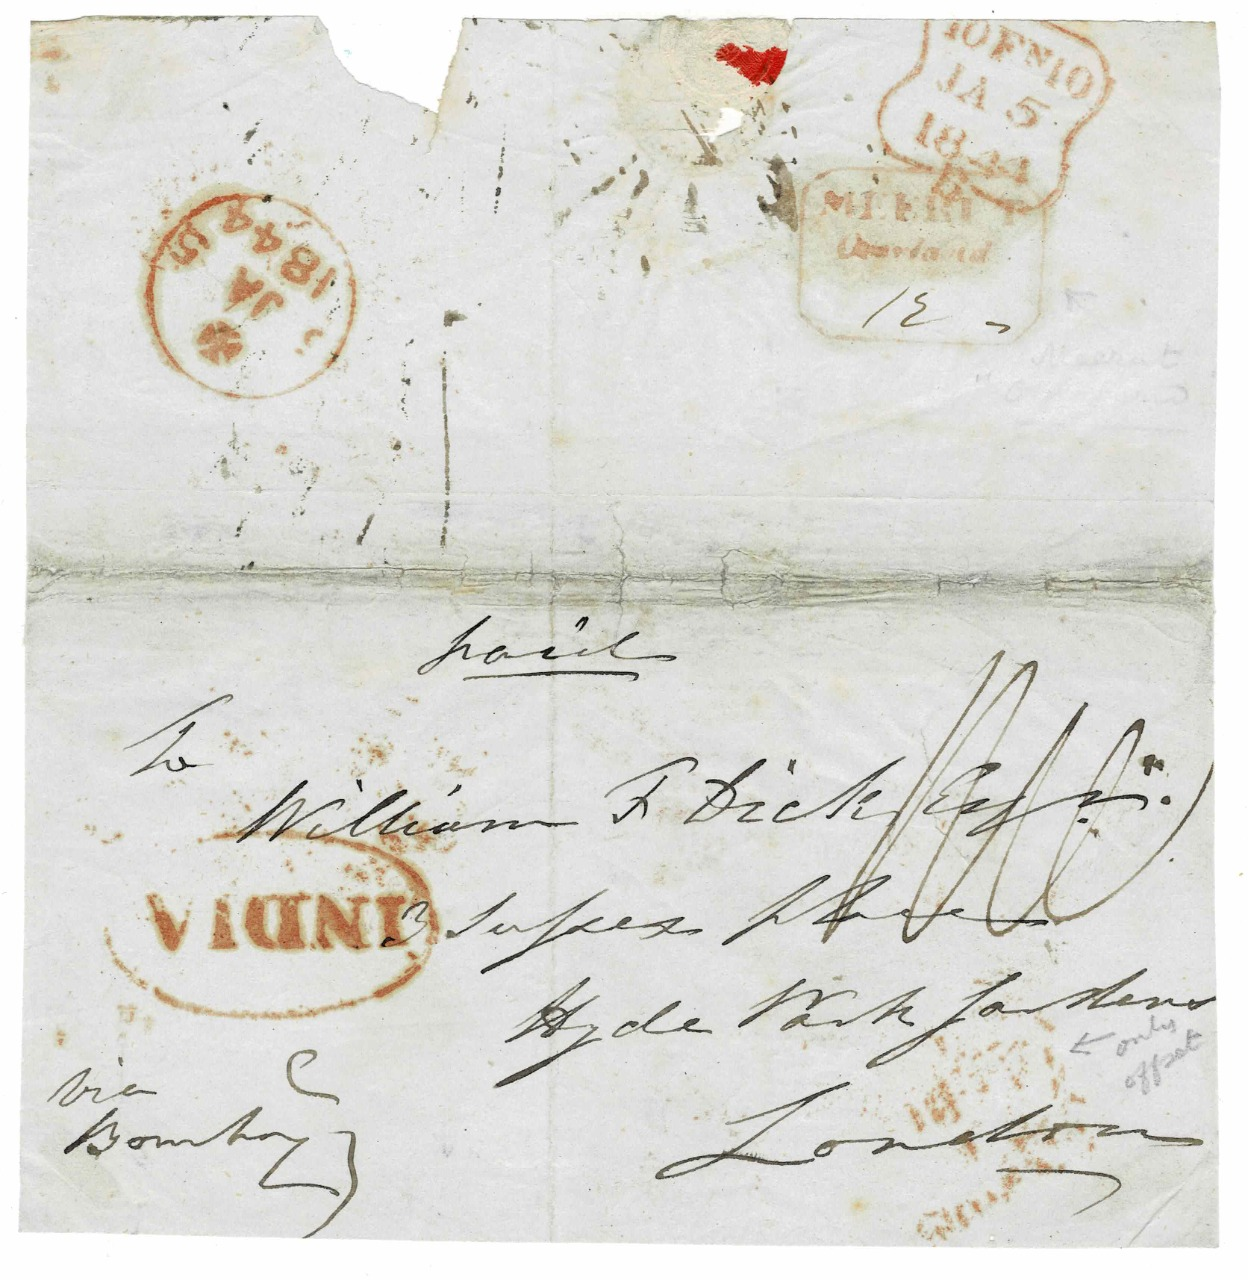 10 FN 10
JA 5
1844
MEERUT
Overland
12
1844
JA 5
paid
To
William F Dick Esqr.
INDIA
3 Sussex place
Hyde Park Gardens
only
offset
London
via
Bombay